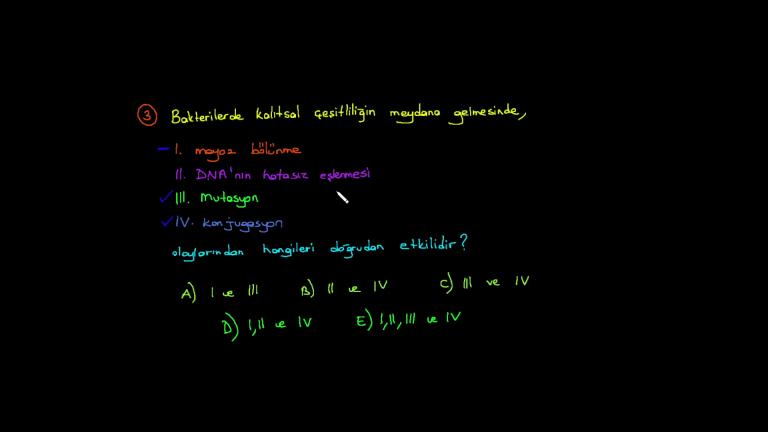 3 Bakterilerde kalıtsal çeşitliliğin meydana gelmesinde,
I. mayoz bölünme
II. DNA'nın hatasız eşlenmesi
III. Mutasyon
IV. konjugasyon
olaylarından hangileri doğrudan etkilidir?
A) I ve III B) II ve IV C) III ve IV
D) I, II ve IV E) I, II, III ve IV